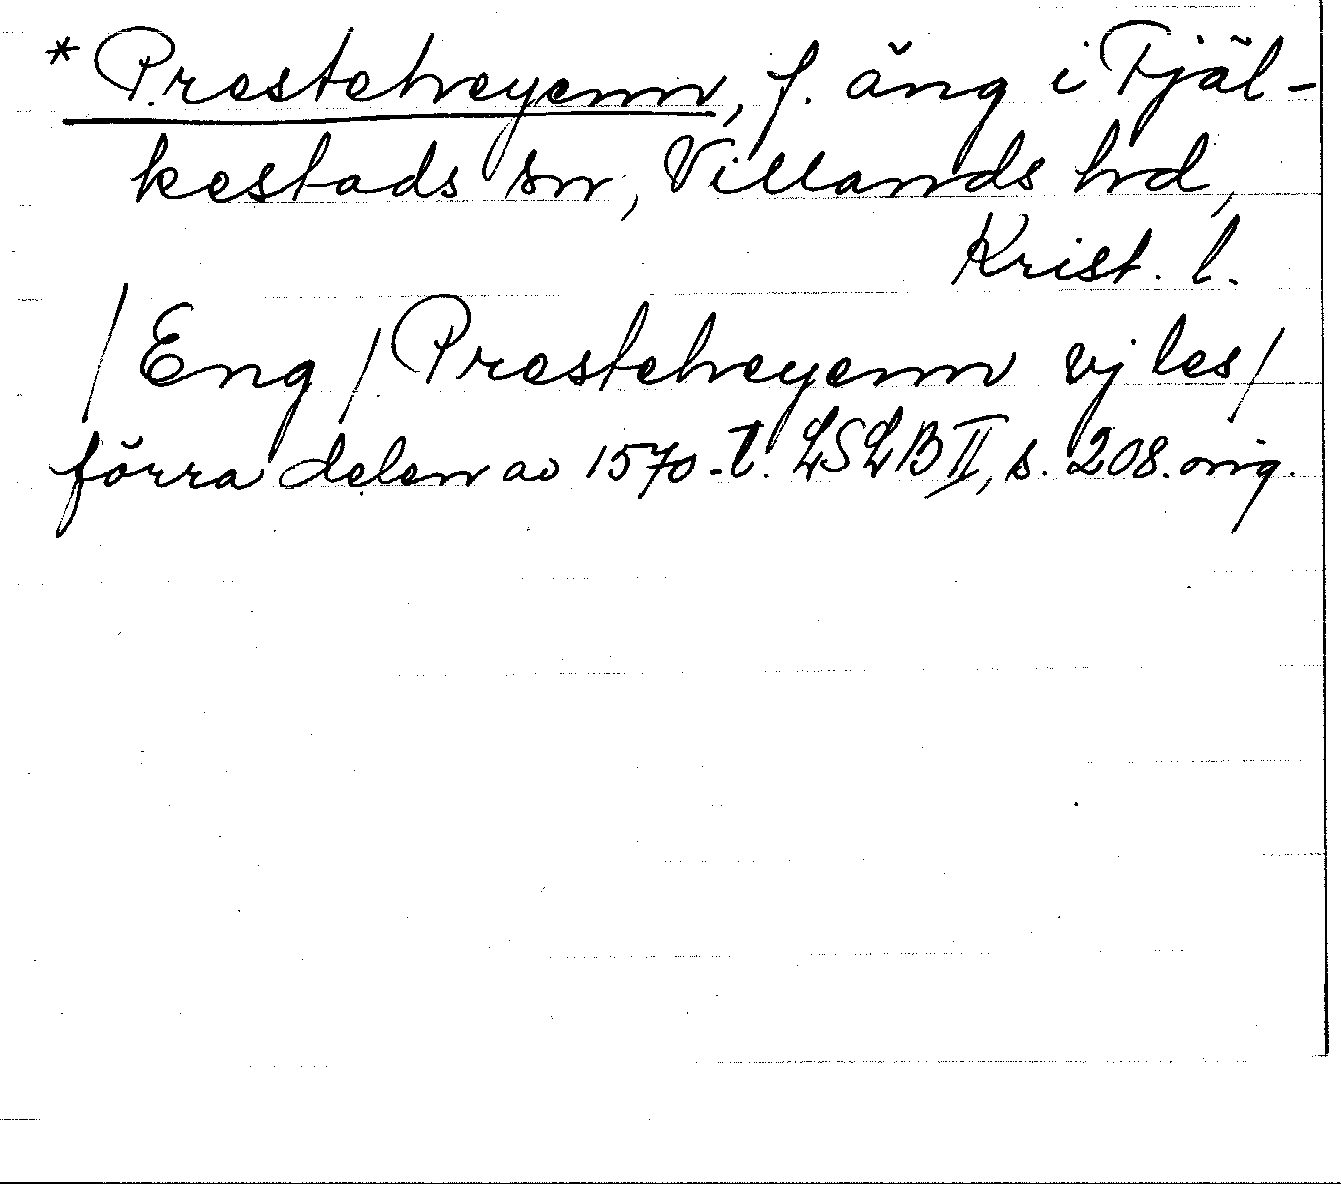 * Presteheyenn, f. äng i Fjäl-
kestads sn, Villands hd,
Krist. l.
/ Eng / Presteheyenn vj les /
förra delen av 1570-t. LSLB II, s. 208. orig.